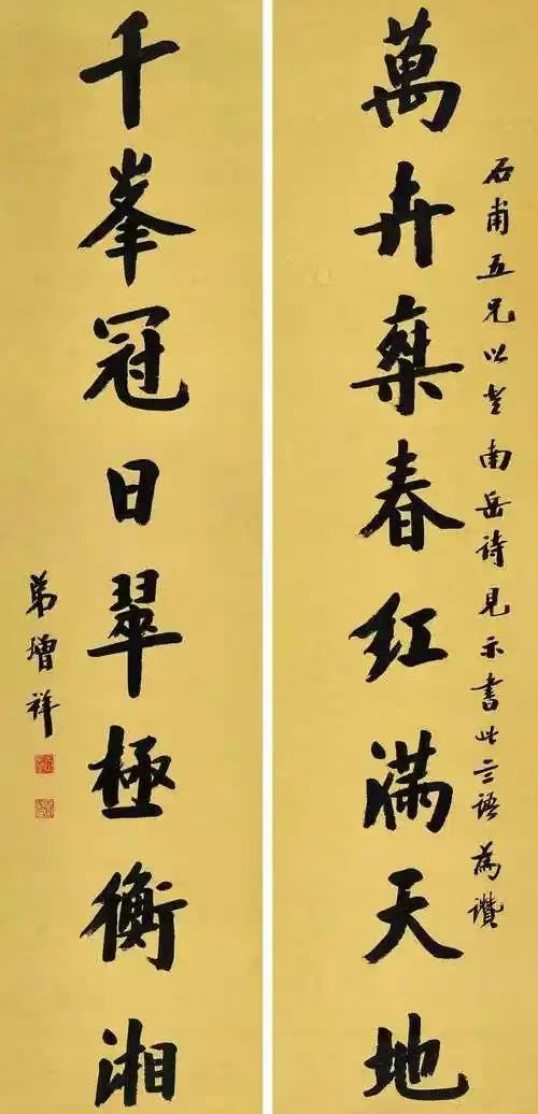 石甫五兄以登南岳詩見示書此語為讚
萬卉春红滿天地
千峯冠日翠極衡湘
弟增祥